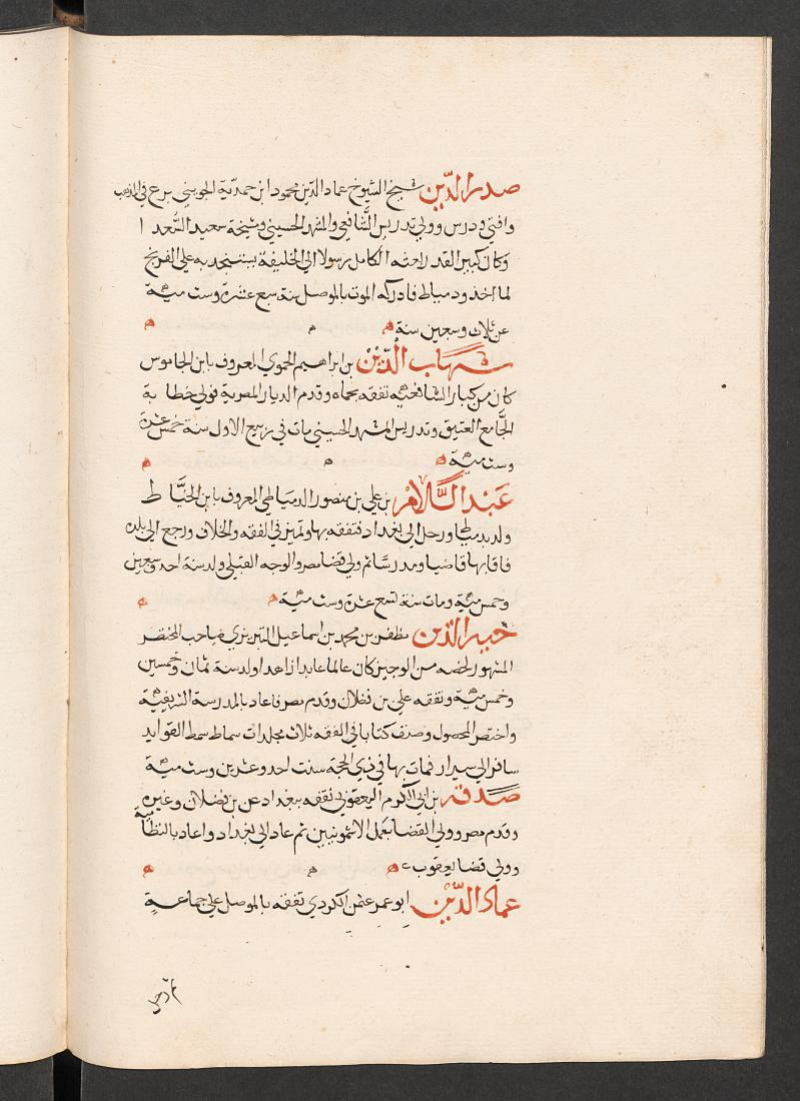 صدر الدين شيخ الشيوخ عماد الدين محمود ابن حمدية الجويني برع في المذهب
وافتي ودرس وولي تدريس الشافعي والمشهد الحسيني وشيخة سعيد السعدا
وكان كبير القدر بعثه الكامل رسولا الي الخليفة يستنجد به علي الفرنج
لما اخذو دمياط فادركه الموت بالموصل سنة سبع عشرة وست مية
عن ثلاث وسبعين سنة
شهاب الدين بن ابراهيم الحموي المعروف بابن الجاموس
كان من كبار الشافعية تفقه بحماه وقدم الديار المصرية فولي خطابة
الجامع العتيق وتدريس المشهد الحسيني مات في ربيع الاول سنة خمس عشرة
وست مية
عبد السلام بن علي بن منصور الدمياطي المعروف بابن الخياط
ولد بدمياط ورحل الي بغداد فتفقه بها وتميز في الفقه والخلاف ورجع الي بلده
فاقام بها قاضيا ومدرسا ثم ولي قضا مصر والوجه القبلي ولد سنة احد وسبعين
وخمس مية ومات سنة تسع عشرة وست مية
خبير الدين مظفر بن محمد بن اسماعيل التبريزي صاحب المختصر
المشهور لخصه من الوجيز كان عالما عابدا زاهدا ولد سنة ثمان وخمسين
وخمس مية وتفقه علي بن فضلان وقدم مصر فاعاد بالمدرسة الشريفية
واختصر المحصول وصنف كتابا في الفقه ثلاث مجلدات سماط سمط الفوايد
سافر الي سيراز فمات بها في ذي الحجة سنت احد وعشرين وست مية
صدقة بن ابي الكروم اليعقوبي تفقه ببغداد عن بن فضلان وغيره
وقدم مصر وولي القضا بعمل الاشمونيين ثم عاد الي بغداد واعاد بالنظامية
وولي قضا يعقوب
عماد الدين ابو عمر عثمن الكردي تفقه بالموصل علي جماعة